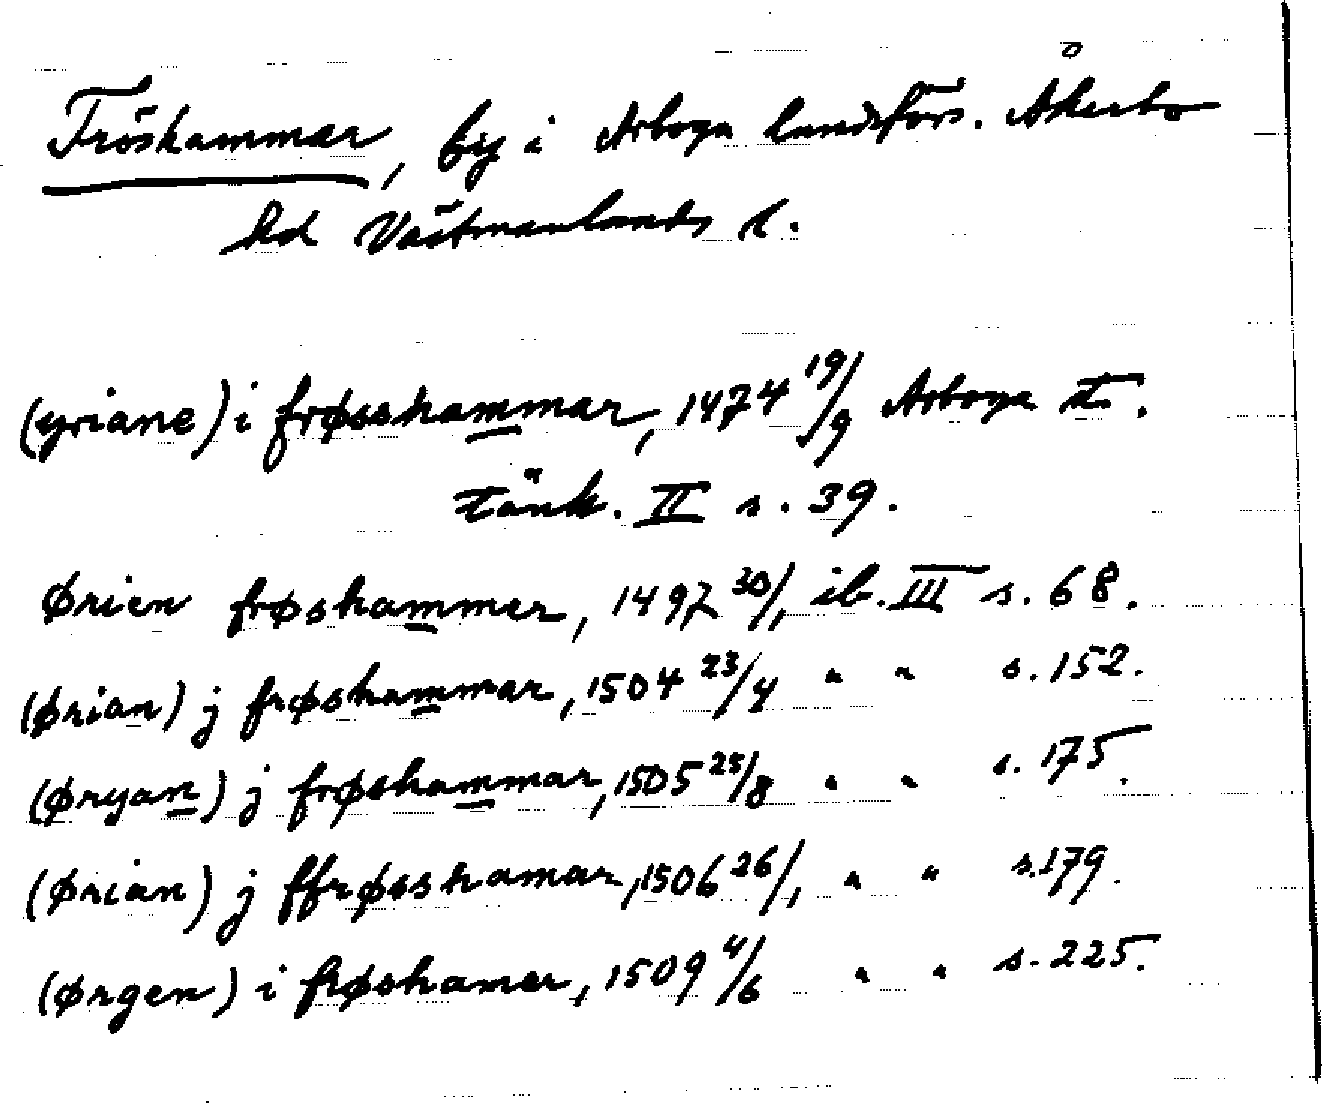 Fröshammar, by i Arboga landsförs. Åkerbo
hd Västmanlands l.
(yriane) i frøsshammar, 1474 19/9 Arboga t.
tänk. II s. 39.
Ørien frøshammer, 1497 30/1 ib. III s. 68.
(Ørian) j frøshammar, 1504 23/4 " " s. 152.
(Øryan) j frøshammar, 1505 25/8 " " s. 175.
(Ørian) j ffrøsshamar, 1506 26/1 " " s. 179.
(Ørgen) i frøshamer, 1509 4/6 " " s. 225.